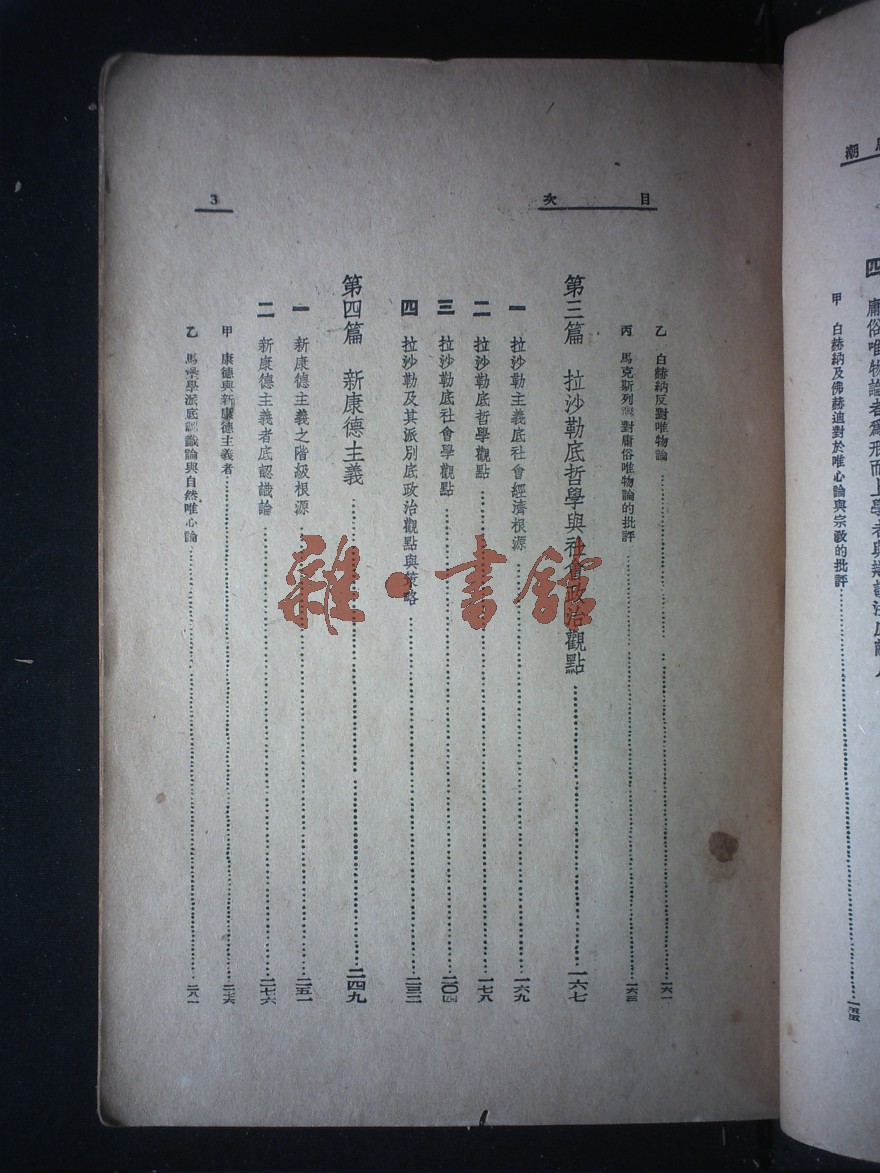 目次
3
乙 白赫納反對唯物論 一六一
丙 馬克斯列 對庸俗唯物論的批評 一六三
第三篇 拉沙勒底哲學與社會政治觀點 一六七
一 拉沙勒主義底社會經濟根源 一六九
二 拉沙勒底哲學觀點 一七八
三 拉沙勒底社會學觀點 二〇四
四 拉沙勒及其派別底政治觀點與策略 二三二
第四篇 新康德主義 二四九
一 新康德主義之階級根源 二五一
二 新康德主義者底認識論 二七六
甲 康德與新康德主義者 二七六
乙 馬堡學派底認識論與自然唯心論 二八一
雜·書館
潮
四 庸俗唯物論者為形而上學者與辯證法底敵人
甲 白赫納及佛赫迪對於唯心論與宗教的批評 一五五